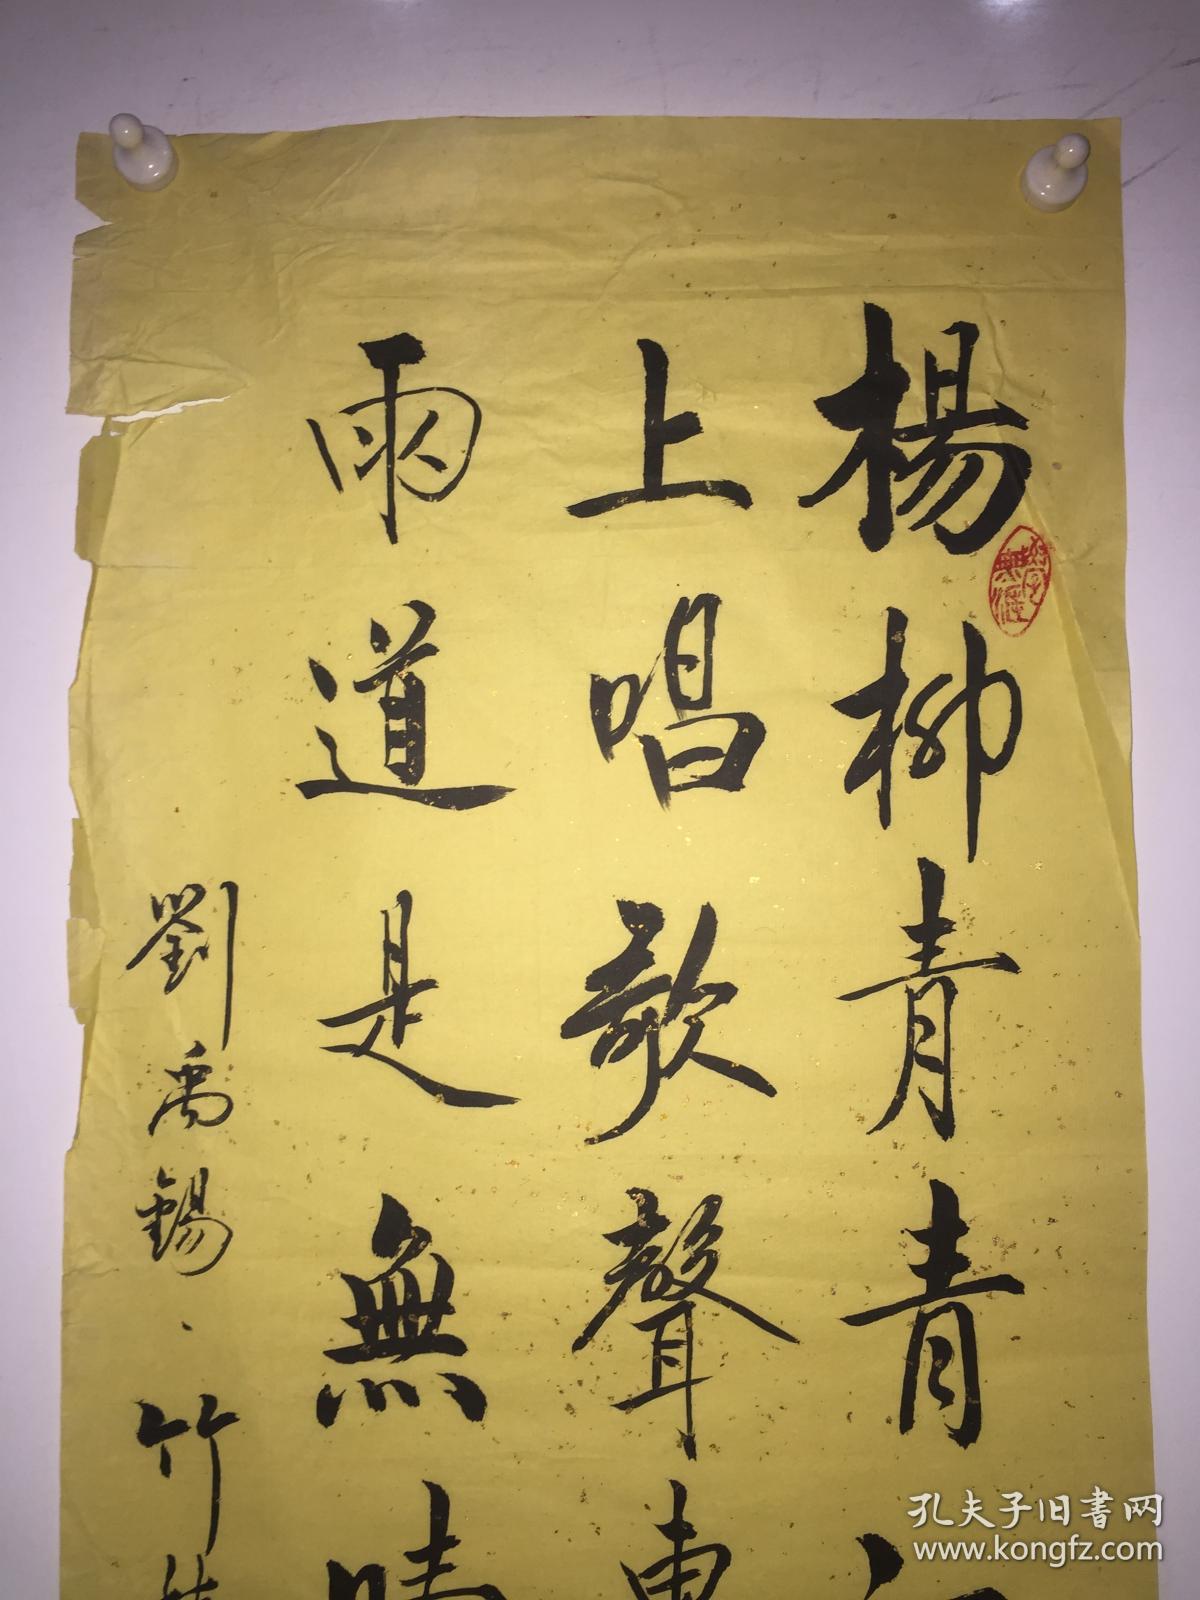 楊柳青青江
上唱歌聲東
雨道是無晴
劉禹錫、竹枝
孔夫子旧書网
www.kongfz.com